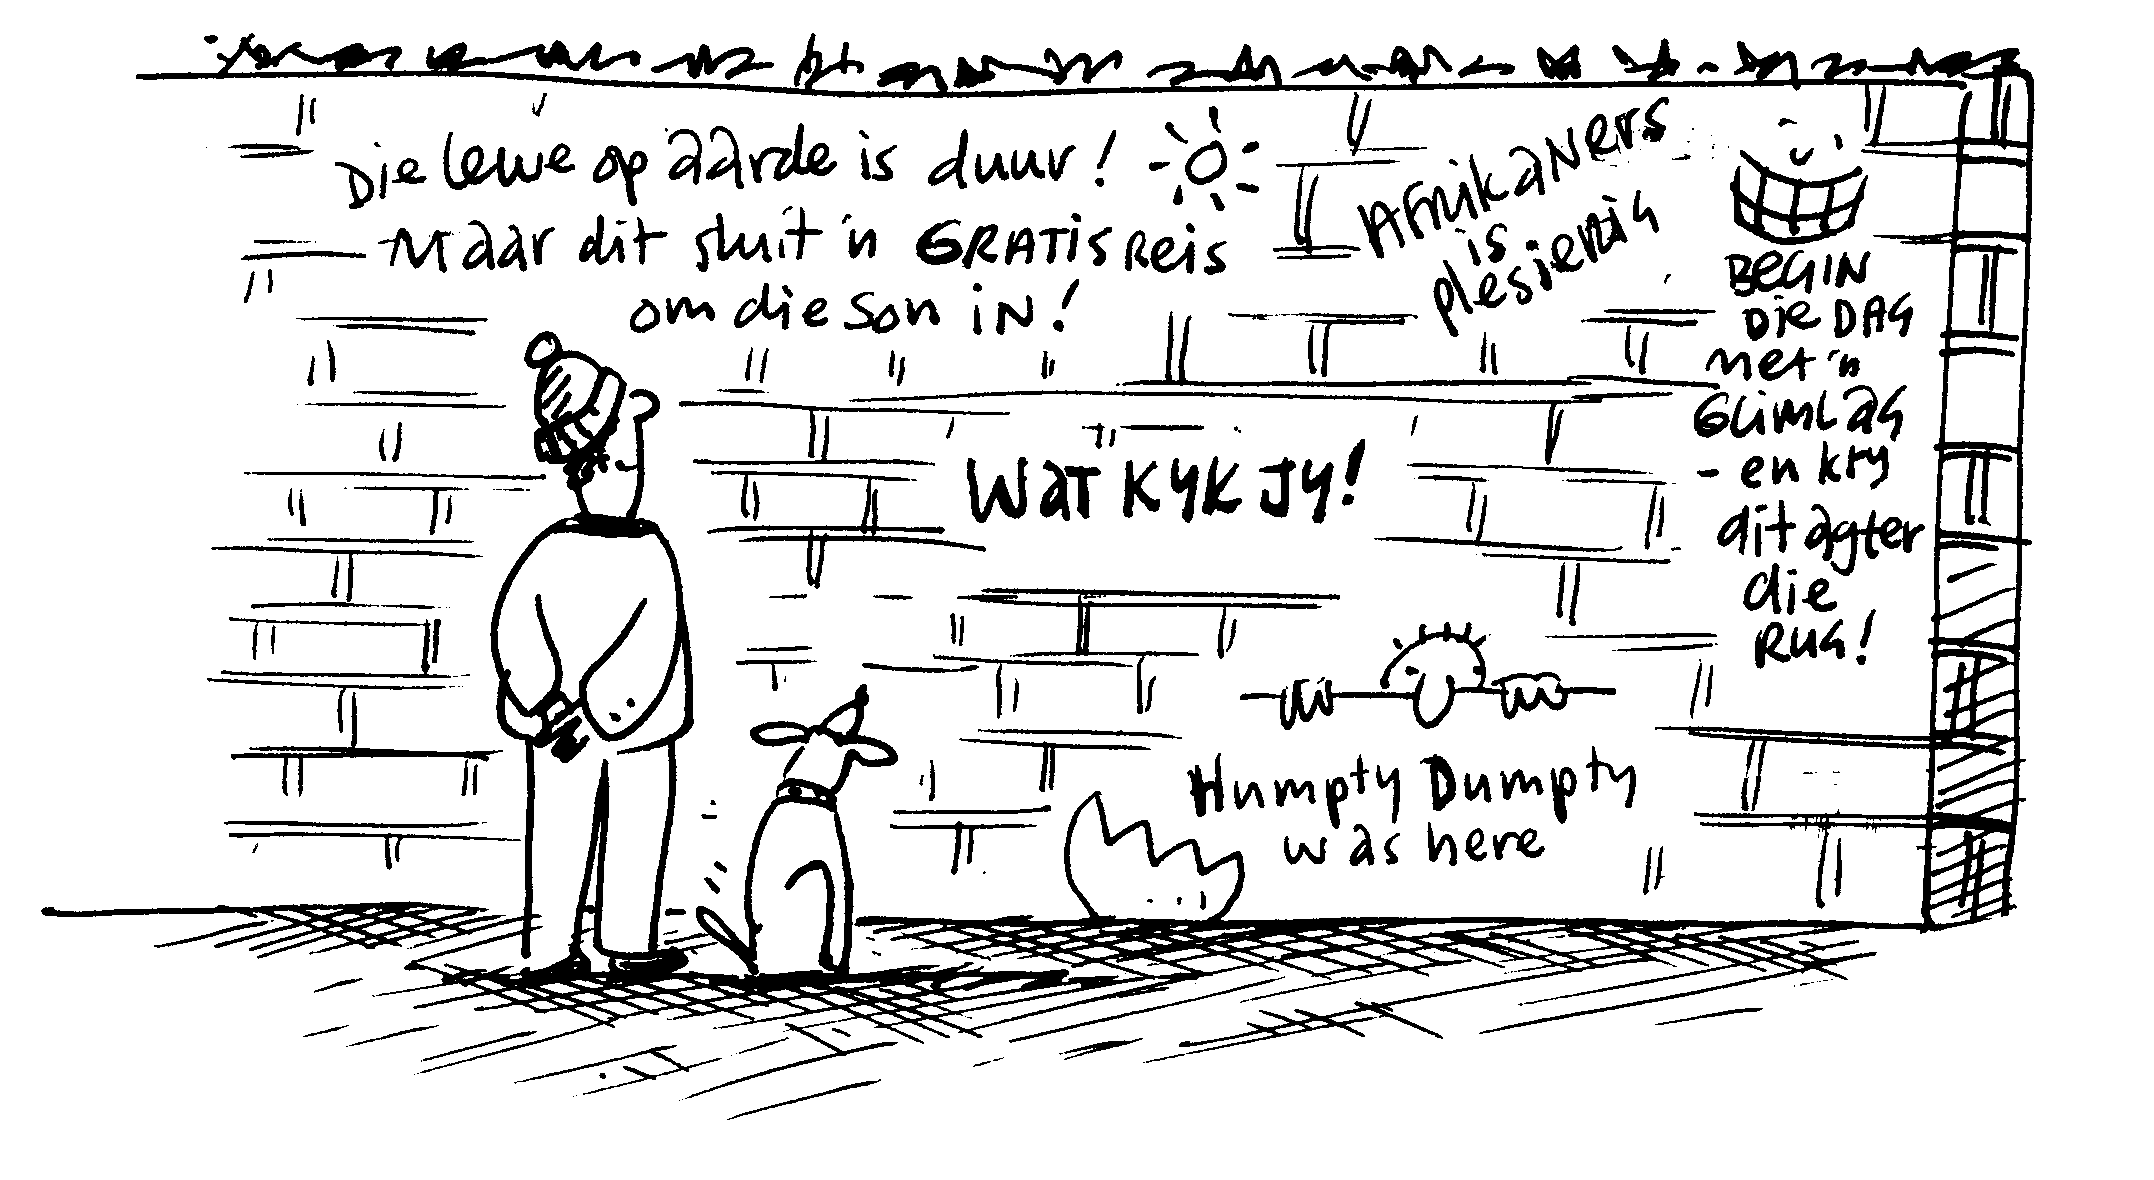 Die lewe op aarde is duur!
Maar dit sluit 'n GRATIS Reis
om die son in!
AfrikaNers
is
plesierig
BEGIN
Die DAG
met 'n
GLiMLAG
- en kry
dit agter
die
RUG!
WAT KYK JY!
Humpty Dumpty
was here